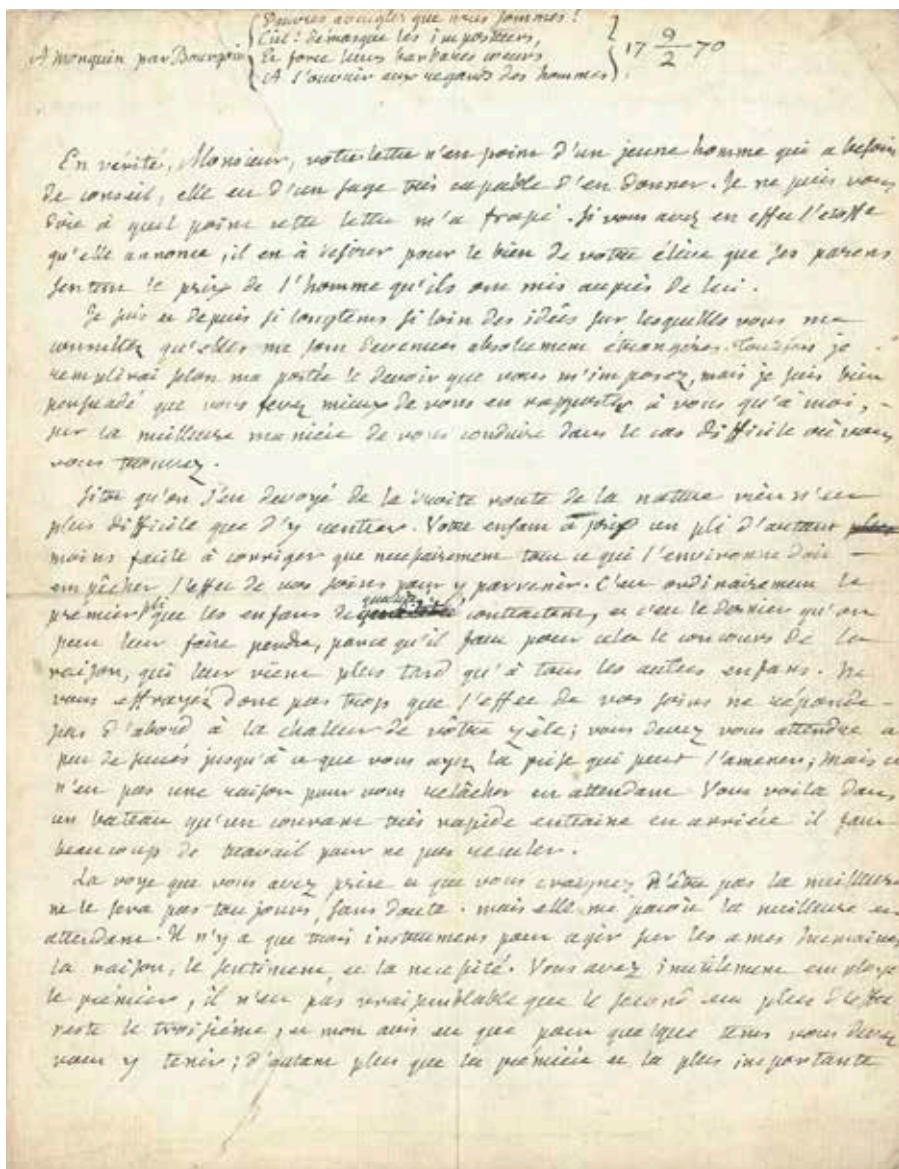 Pauvres aveugles que nous sommes !
Ciel ! démasque les imposteurs,
A Monquin par Bourgoin
Et force leurs barbares cœurs
A s'ouvrir aux regards des hommes.
17 9/2 70
En vérité, Monsieur, votre lettre n'est point d'un jeune homme qui a besoin
de conseil, elle est d'un sage très capable d'en donner. Je ne puis vous
dire à quel point cette lettre m'a frapé. Si vous avez en effet l'étoffe
qu'elle annonce, il est à desirer pour le bien de votre élève que ses parens
sentent le prix de l'homme qu'ils ont mis auprès de lui.
Je suis et depuis si longtems si loin des idées sur lesquelles vous me
consultez qu'elles me sont devenues absolument étrangéres. Toutefois je
remplirai selon ma portée le devoir que vous m'imposez, mais je suis bien
persuadé que vous ferez mieux de vous en rapporter à vous qu'à moi,
sur la meilleure maniére de vous conduire dans le cas difficile où vous
vous trouvez.
Sitot qu'on s'est devoyé de la droite route de la nature rien n'est
plus difficile que d'y rentrer. Votre enfant a pris un pli d'autant
moins facile à corriger que necessairement tout ce qui l'environne doit
empêcher l'effet de vos soins pour y parvenir. C'est ordinairement le
prémier pli que les enfans de qualité contractent, et c'est le dernier qu'on
peut leur faire perdre, parce qu'il faut pour cela le concours de la
raison, qui leur vient plus tard qu'à tous les autres enfans. Ne
vous effrayez donc pas trop que l'effet de vos soins ne réponde
pas d'abord à la chaleur de vôtre zéle ; vous devez vous attendre à
peu de succès jusqu'à ce que vous ayez la prise qui peut l'amener ; mais ce
n'est pas une raison pour vous relâcher en attendant. Vous voila dans
un bateau qu'un courant très rapide entraine en arriére il faut
beaucoup de travail pour ne pas reculer.
La voye que vous avez prise et que vous craignez n'être pas la meilleure
ne le sera pas toujours, sans doute. mais elle me paroit la meilleure en
attendant. Il n'y a que trois instrumens pour agir sur les ames humaines,
la raison, le sentiment, et la necessité. Vous avez inutilement employé
le prémier, il n'est pas vraisemblable que le second eut plus d'effet,
reste le troisiéme, et mon avis est que pour quelque tems vous devez
vous y tenir ; d'autant plus que la prémiére et la plus importante